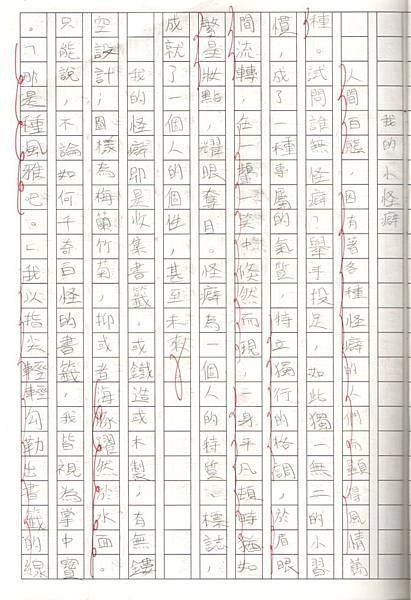 我的小怪癖
人間百態,因有著各種怪癖的人們而顯得風情萬
種。試問誰無怪癖?舉手投足,如此獨一無二的小習
慣,成了一種專屬的氣質,特立獨行的格調,於眉眼
間流轉,在一顰一笑中倏然而現,一身平凡頓時猶如
繁星妝點,耀眼奪目。怪癖為一個人的特質標誌,
成就了一個人的個性,甚至未來。
我的怪癖即是收集書籤,或鐵造或木製,有無鏤
空設計;圖樣為梅蘭竹菊,抑或者海豚躍然於水面。
只能說,不論如何千奇百怪的書籤,我皆視為掌中寶
。「那是種風雅吧。」我以指尖輕輕勾勒出書籤的線